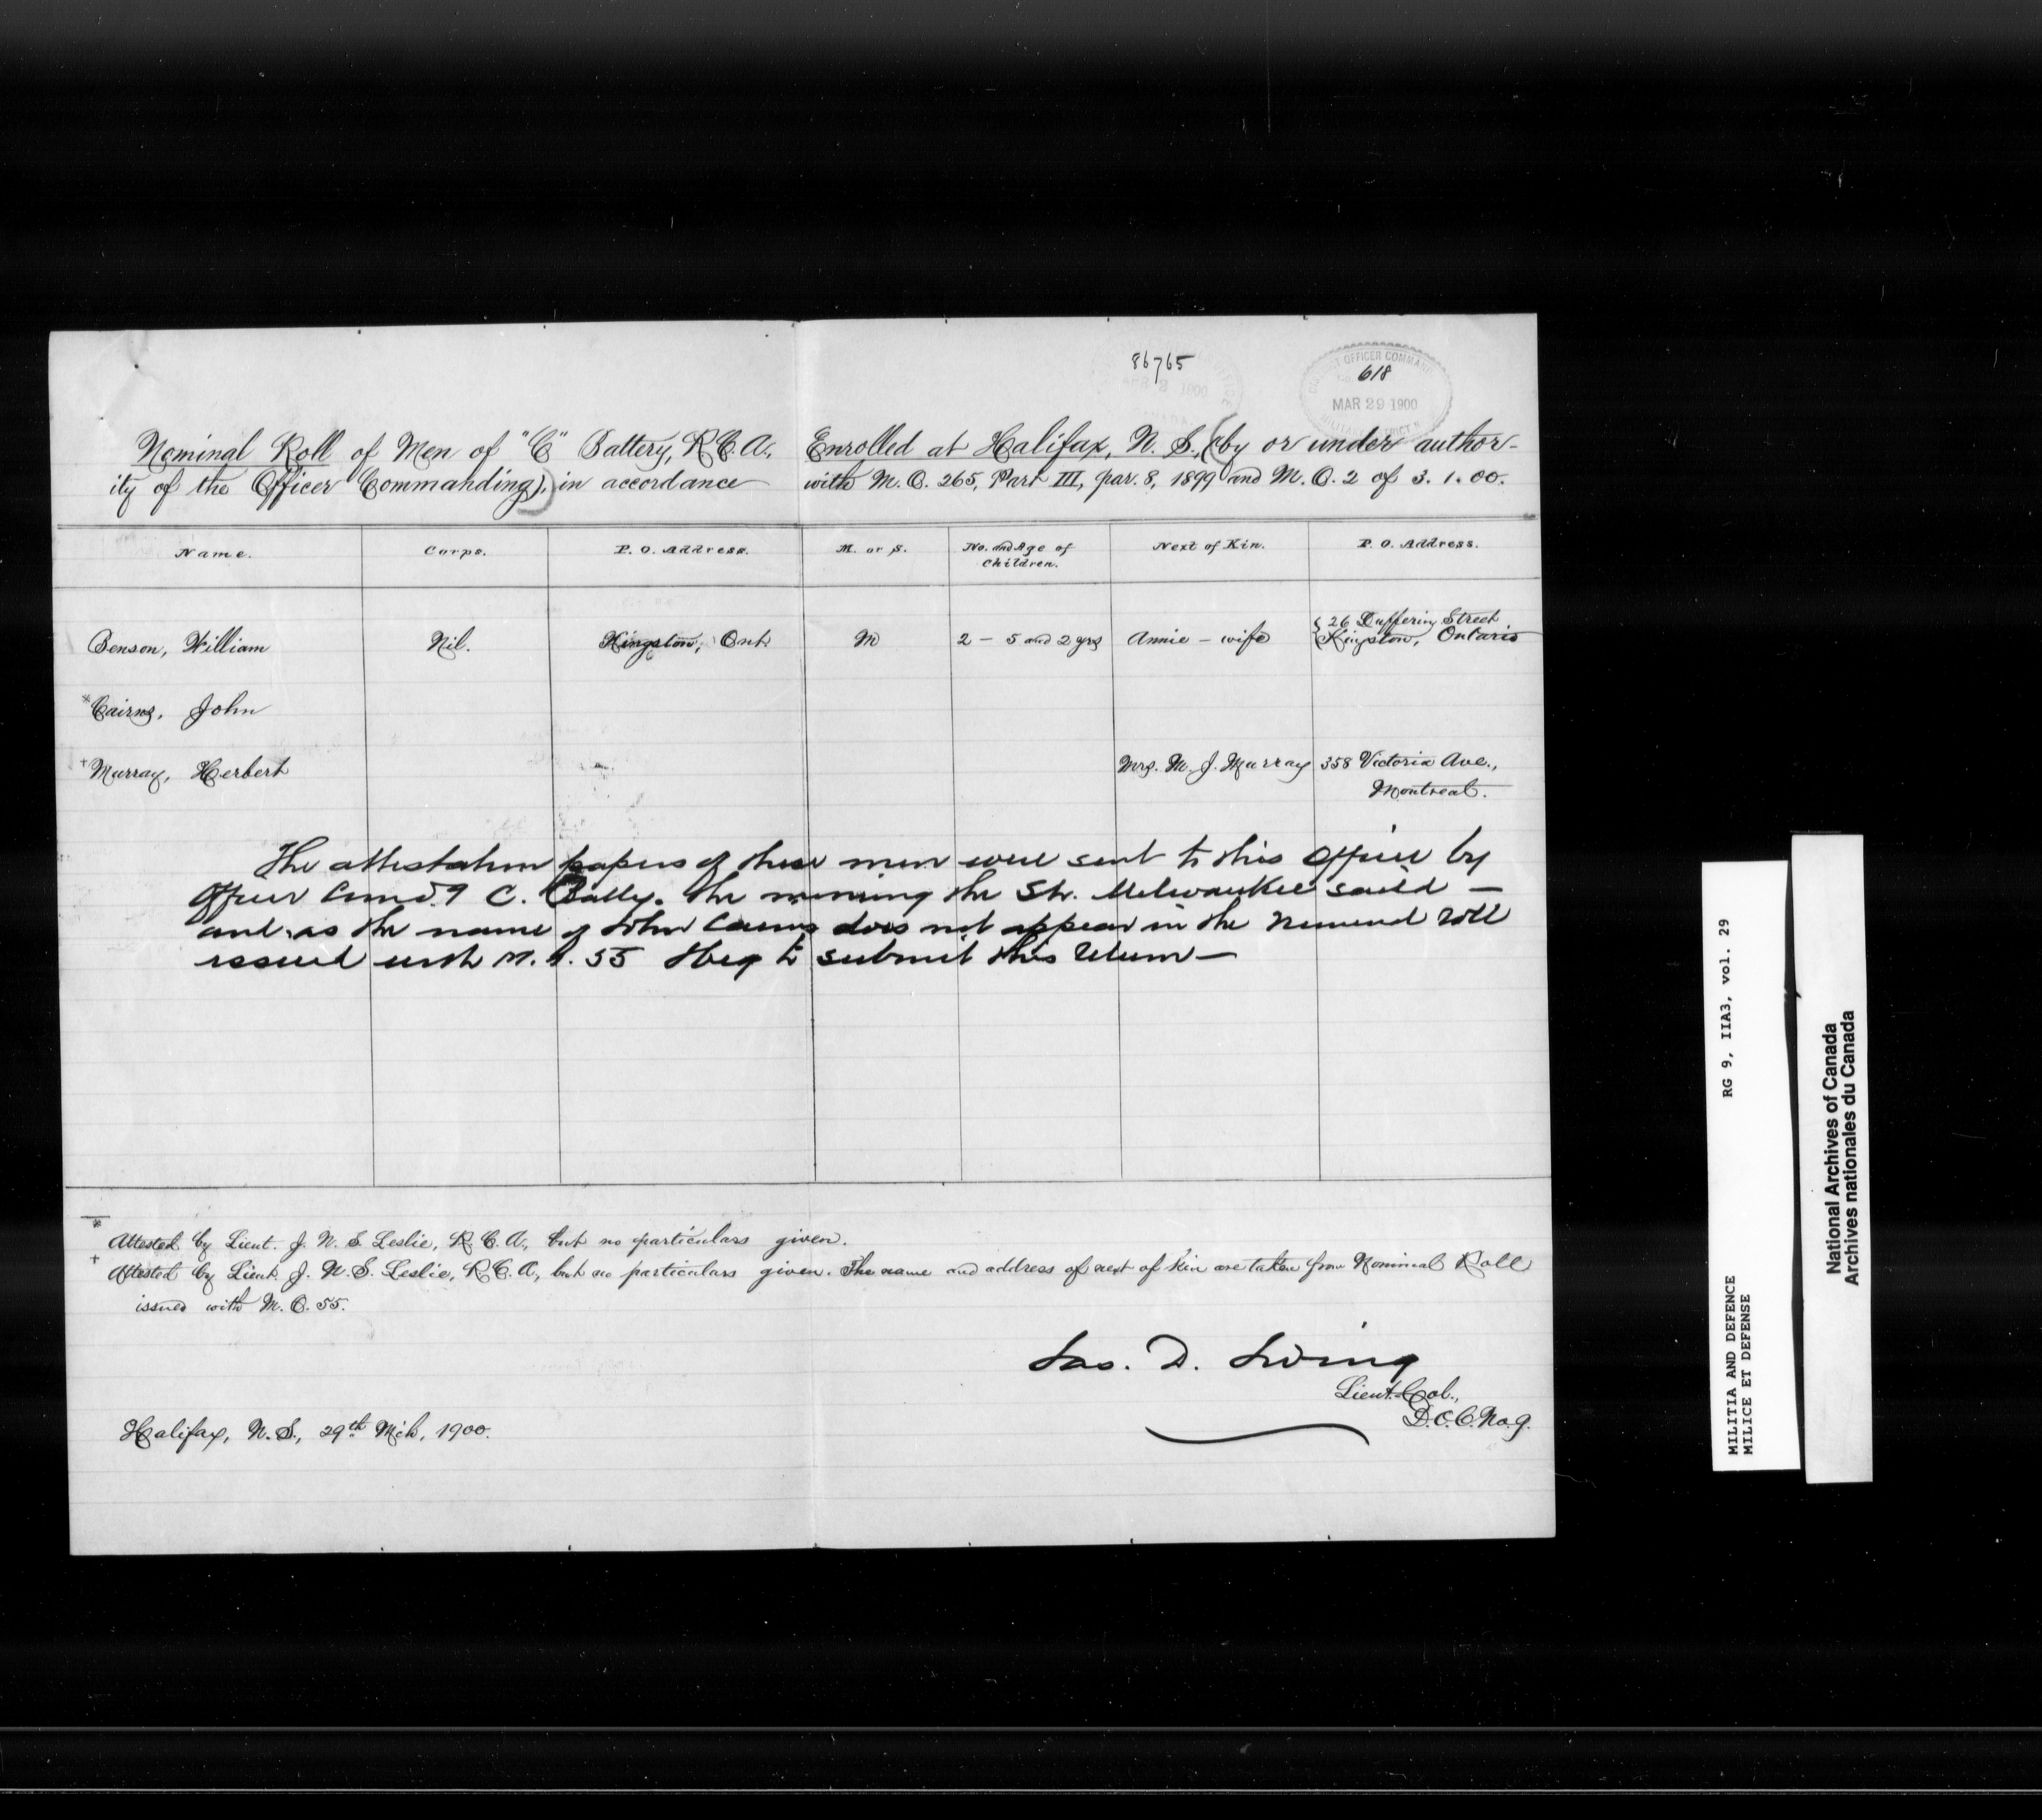 86765
OFFICER COMMAND
618
MAR 29 1900
MILITARY DISTRICT
2 1900
Nominal Roll of Men of "C" Battery, R.C.A., Enrolled at Halifax, N. S., (by or under author-
ity of the Officer Commanding), in accordance with M. O. 265, Part III, par. 8, 1899 and M. O. 2 of 3. 1. 00.
Name. Corps. P. O. Address. M. or S. No. and Age of Children. Next of Kin. P. O. Address.
Benson, William Nil. Kingston, Ont. M 2 - 5 and 2 yrs Annie - wife { 26 Dufferin Street
Kingston, Ontario
* Cairns, John
+ Murray, Herbert Mrs. M. J. Murray 358 Victoria Ave.,
Montreal.
The attestation papers of these men were sent to this Office by
Officer Comdg C. Batty. the morning the Str. Milwaukee sailed —
and as the name of John Cairns does not appear in the Nominal Roll
issued with M. O. 55 I beg to submit this Return —
* Attested by Lieut. J. N. S. Leslie, R. C. A., but no particulars given.
+ Attested by Lieut. J. N. S. Leslie, R. C. A., but no particulars given. The name and address of next of kin are taken from Nominal Roll
issued with M. O. 55.
Jas. D. Irving
Lieut. Col.,
D.O.C. No. 9.
Halifax, N. S., 29th Mch, 1900.
RG 9, IIA3, vol. 29
MILITIA AND DEFENCE
MILICE ET DEFENSE
National Archives of Canada
Archives nationales du Canada